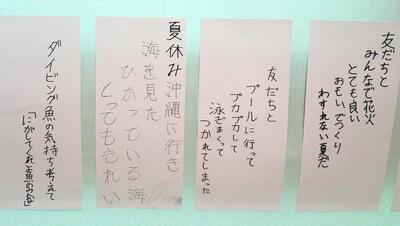 友だちと
みんなで花火
とても良い
おもいでづくり
わすれない夏だ
友だちと
プールに行って
プカプカして
泳ぎまくって
つかれてしまった
夏休み沖縄に行き
海を見た
ひかっている海
とってもきれい
ダイビング魚の気持ち考えて
「にがしてくれと魚の